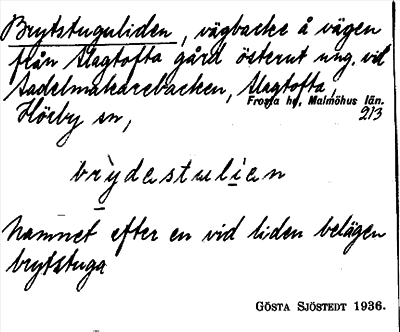 Brytstuguliden, vägbacke å vägen
från Slagtofta gård österut ung. vid
Sadelmakarebacken, Slagtofta,
Frosta hd, Malmöhus län.
Hörby sn, 213
brỳdestulien
Namnet efter en vid liden belägen
brytstuga
GÖSTA SJÖSTEDT 1936.